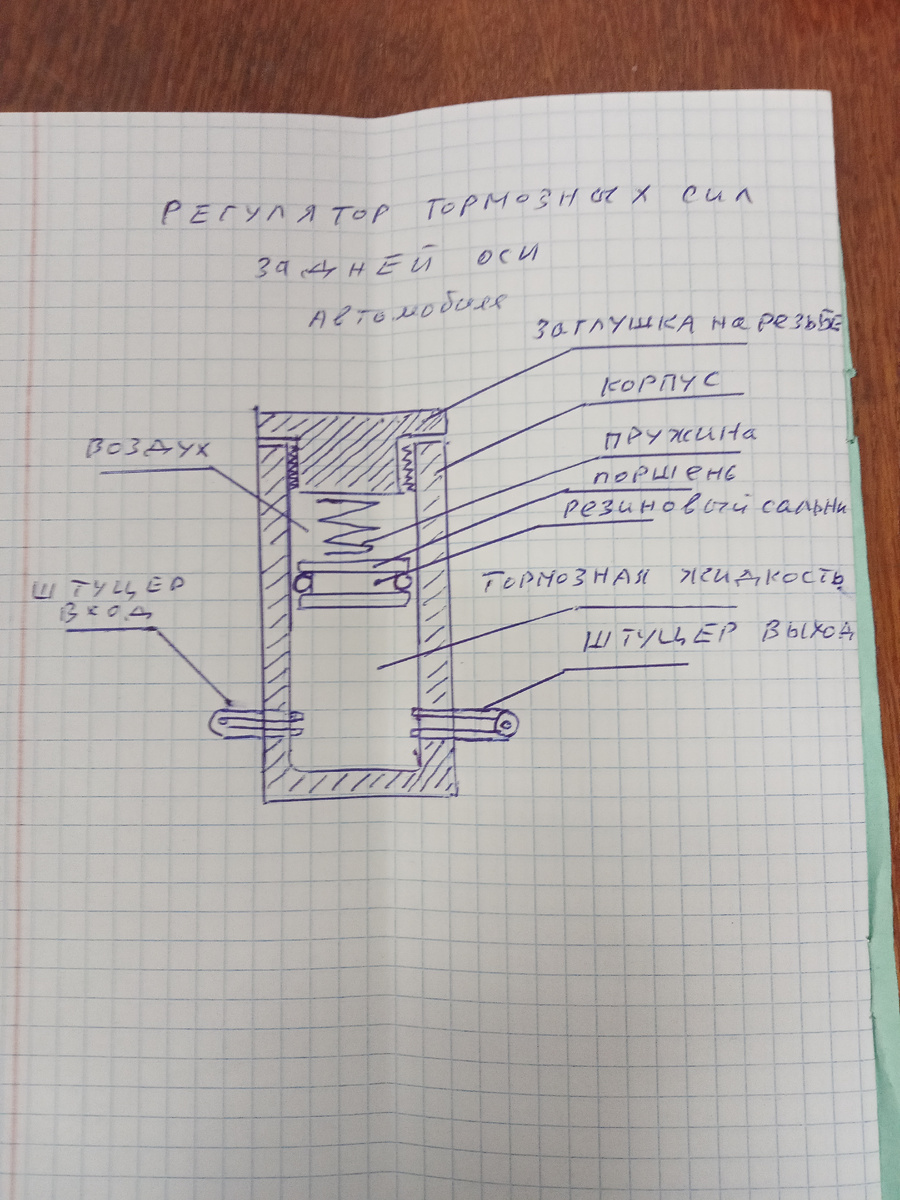 РЕГУЛЯТОР ТОРМОЗНЫХ СИЛ
ЗАДНЕЙ ОСИ
АВТОМОБИЛЯ
ЗАГЛУШКА НА РЕЗЬБЕ
КОРПУС
ПРУЖИНА
ВОЗДУХ
ПОРШЕНЬ
РЕЗИНОВЫЙ САЛЬНИ
ТОРМОЗНАЯ ЖИДКОСТЬ
ШТУЦЕР
ВХОД
ШТУЦЕР ВЫХОД